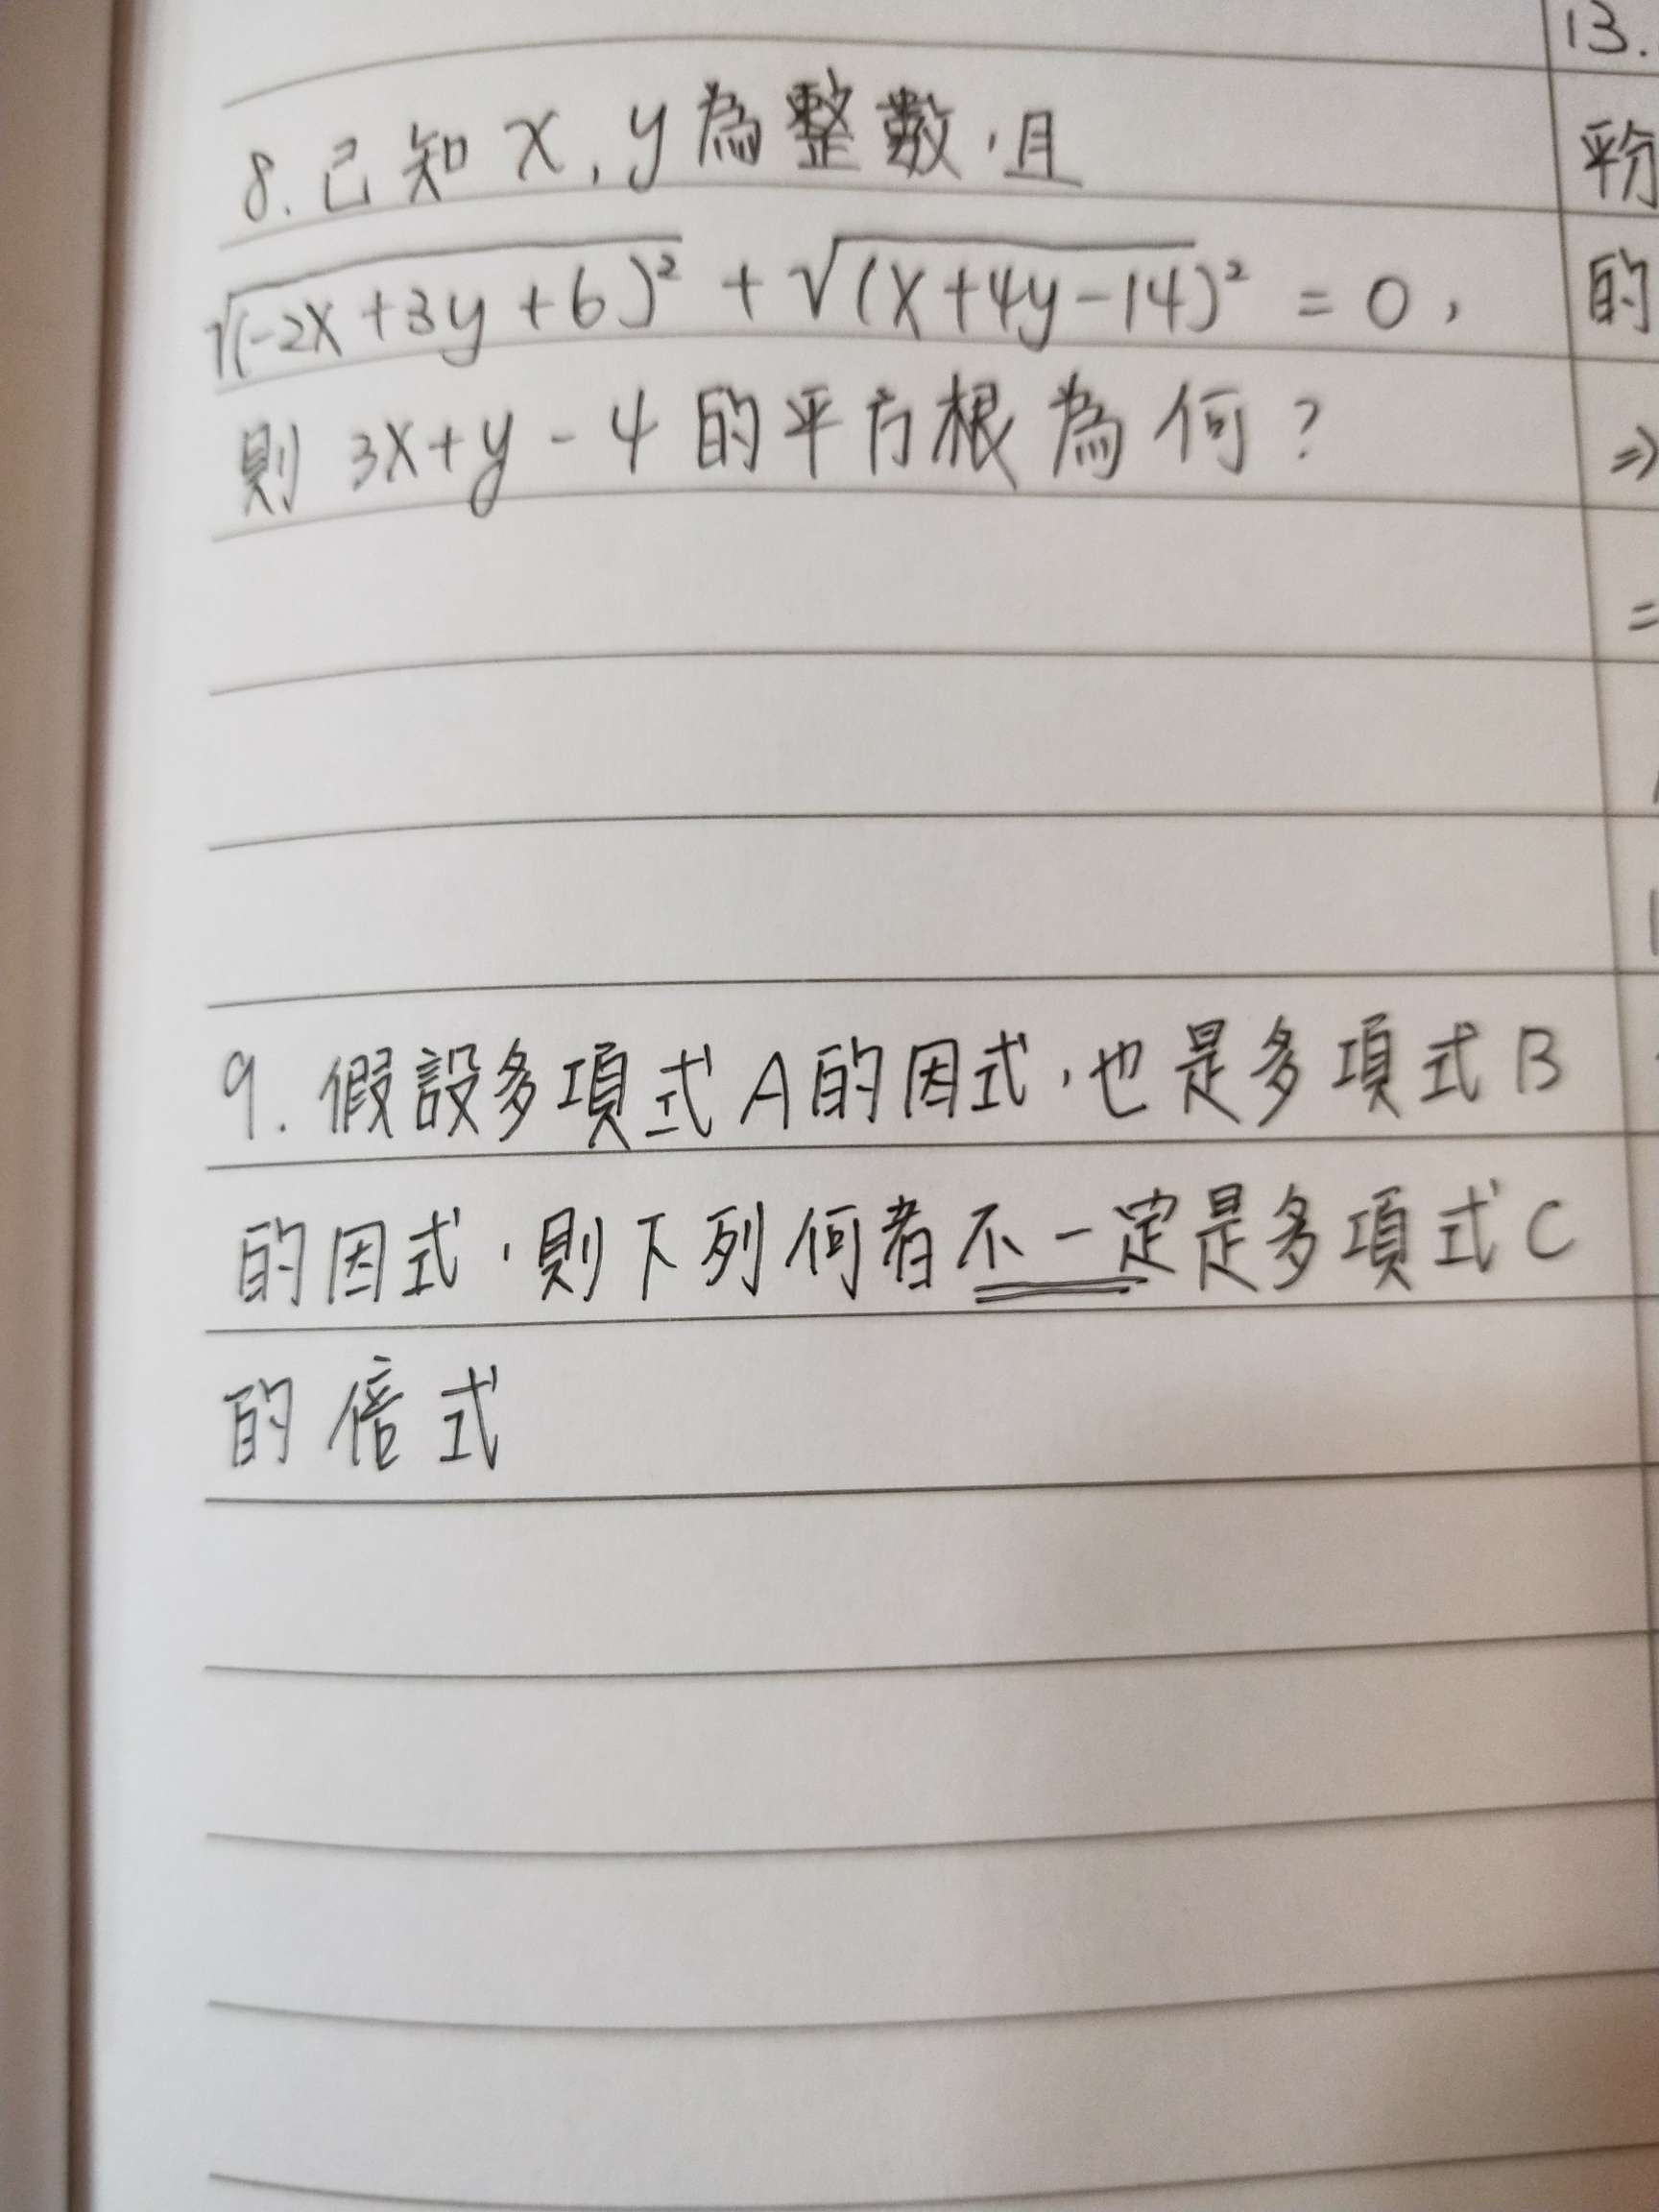 8. 已知 x, y 為整數,且
√(-2x+3y+6)² + √(x+4y-14)² = 0,
則 3x+y-4 的平方根為何?
9. 假設多項式A的因式,也是多項式B
的因式,則下列何者不一定是多項式C
的倍式
13.
的
⇒
=